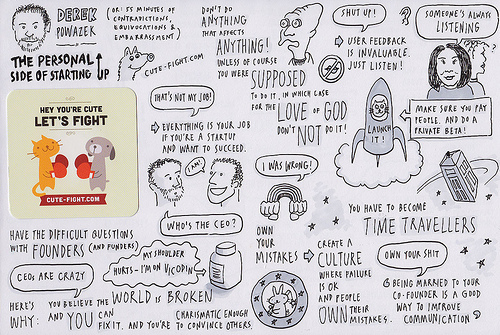 DEREK
POWAZEK
(OR: 55 MINUTES OF
CONTRADICTIONS,
EQUIVOCATIONS &
EMBARRASSMENT)
THE PERSONAL
SIDE OF STARTING UP
CUTE-FIGHT.COM
HEY YOU'RE CUTE
LET'S FIGHT
CUTE-FIGHT.COM
DON'T DO
ANYTHING
THAT AFFECTS
ANYTHING!
UNLESS OF COURSE
YOU WERE
SUPPOSED
TO DO IT, IN WHICH CASE
FOR THE LOVE OF GOD
DON'T NOT DO IT!
SHUT UP!
USER FEEDBACK
IS INVALUABLE.
JUST LISTEN!
SOMEONE'S ALWAYS
LISTENING
?
THAT'S NOT MY JOB!
EVERYTHING IS YOUR JOB
IF YOU'RE A STARTUP
AND WANT TO SUCCEED.
LAUNCH
IT!
MAKE SURE YOU PAY
PEOPLE. AND DO A
PRIVATE BETA!
I AM!
WHO'S THE CEO?
I WAS WRONG!
OWN
YOUR
MISTAKES
CREATE A
CULTURE
WHERE FAILURE
IS OK
AND PEOPLE
OWN THEIR
MISTAKES.
YOU HAVE TO BECOME
TIME TRAVELLERS
OWN YOUR SHIT
BEING MARRIED TO YOUR
CO-FOUNDER IS A GOOD
WAY TO IMPROVE
COMMUNICATION
HAVE THE DIFFICULT QUESTIONS
WITH FOUNDERS (AND FUNDERS)
CEOs ARE CRAZY
MY SHOULDER
HURTS - I'M ON VICODIN
HERE'S
WHY:
YOU BELIEVE THE WORLD IS BROKEN
AND YOU CAN
FIX IT. AND YOU'RE
CHARISMATIC ENOUGH
TO CONVINCE OTHERS.